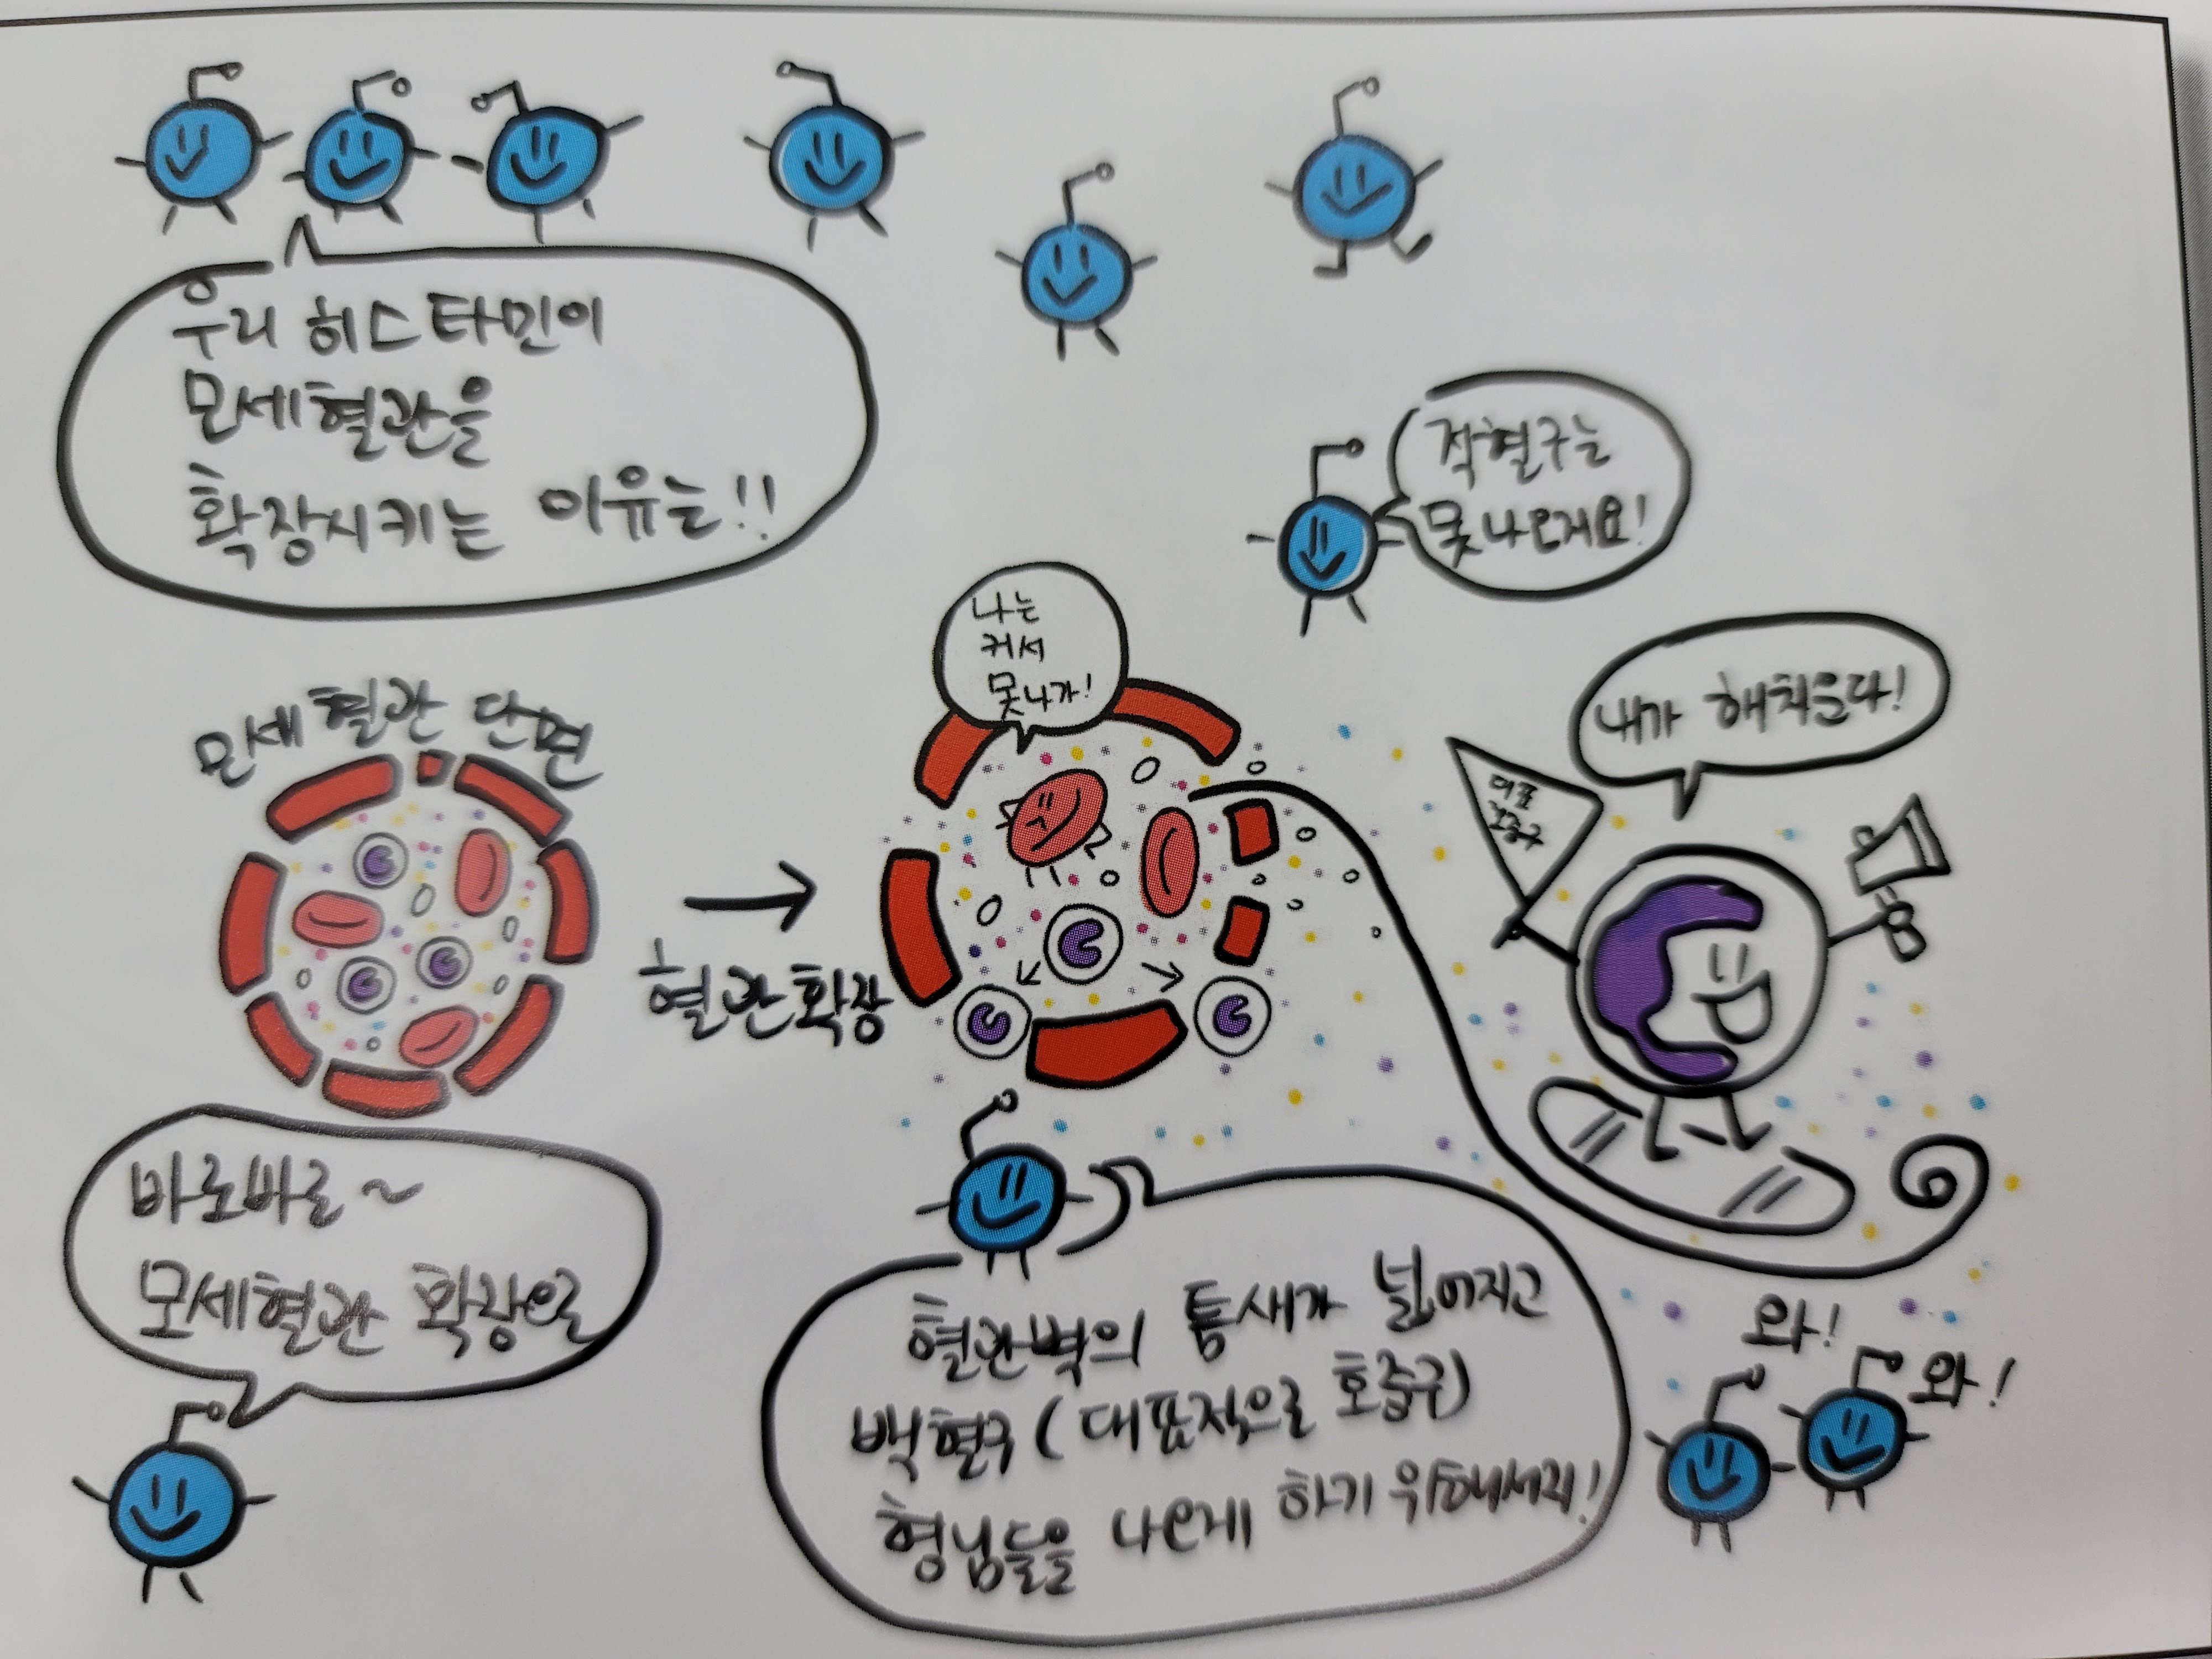 우리 히스타민이
모세혈관을
확장시키는 이유는!!
적혈구는
못나온게요!
나는
커서
못나가!
내가 해치운다!
대표
호중구
모세혈관 단편
혈관확장
바로바로~
모세혈관 확장으로
혈관벽의 틈새가 넓어지고
백혈구(대표적으로 호중구)
형님들을 나오게 하기 위해서지!
와!
와!